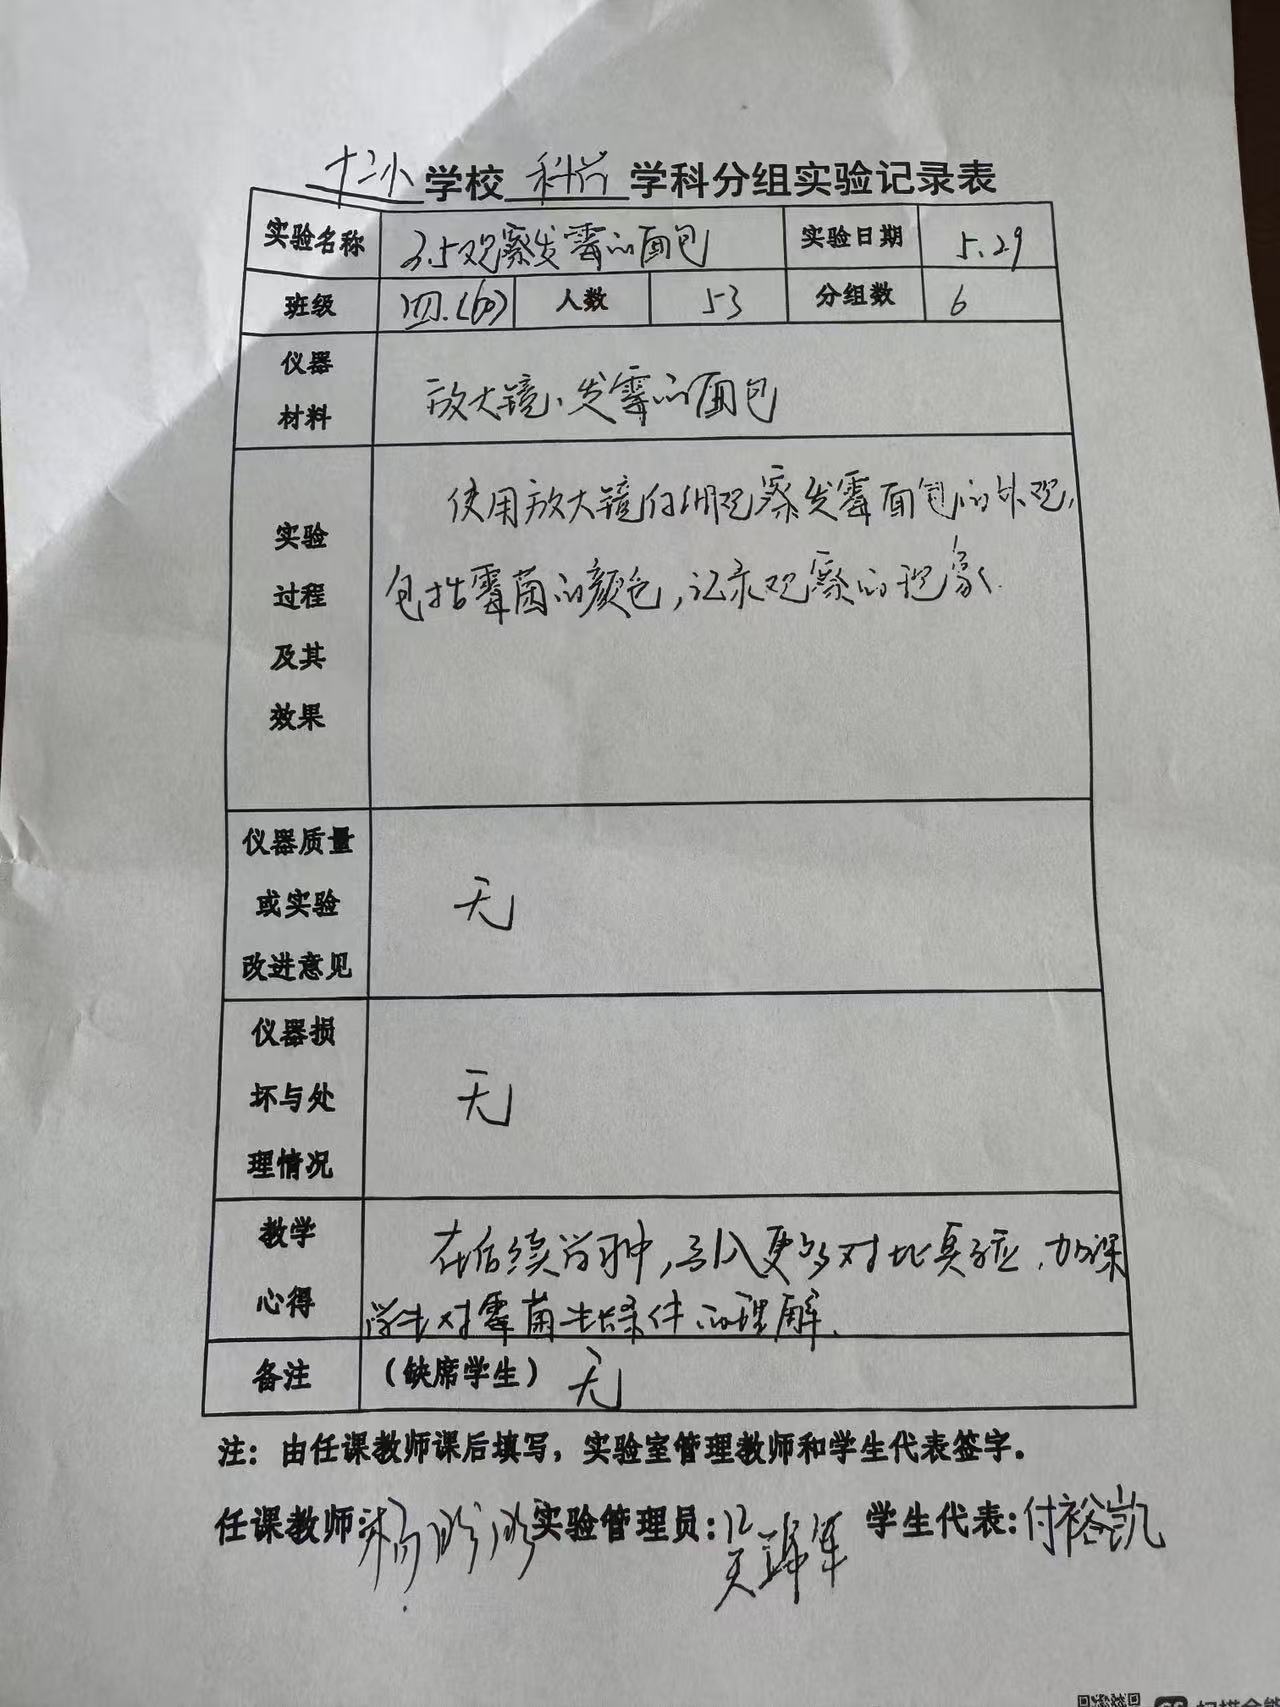 十二小学校 科学 学科分组实验记录表
实验名称 2.5观察发霉的面包 实验日期 5.29
班级 四.(6) 人数 53 分组数 6
仪器
材料
放大镜、发霉的面包
实验
过程
及其
效果
使用放大镜仔细观察发霉面包的外观,
包括霉菌的颜色,记录观察的现象.
仪器质量
或实验
改进意见
无
仪器损
坏与处
理情况
无
教学
心得
在后续学习中,引入更多对比实验,加深
学生对霉菌生长条件的理解.
备注 (缺席学生) 无
注：由任课教师课后填写，实验室管理教师和学生代表签字。
任课教师 实验管理员: 学生代表:付裕凯